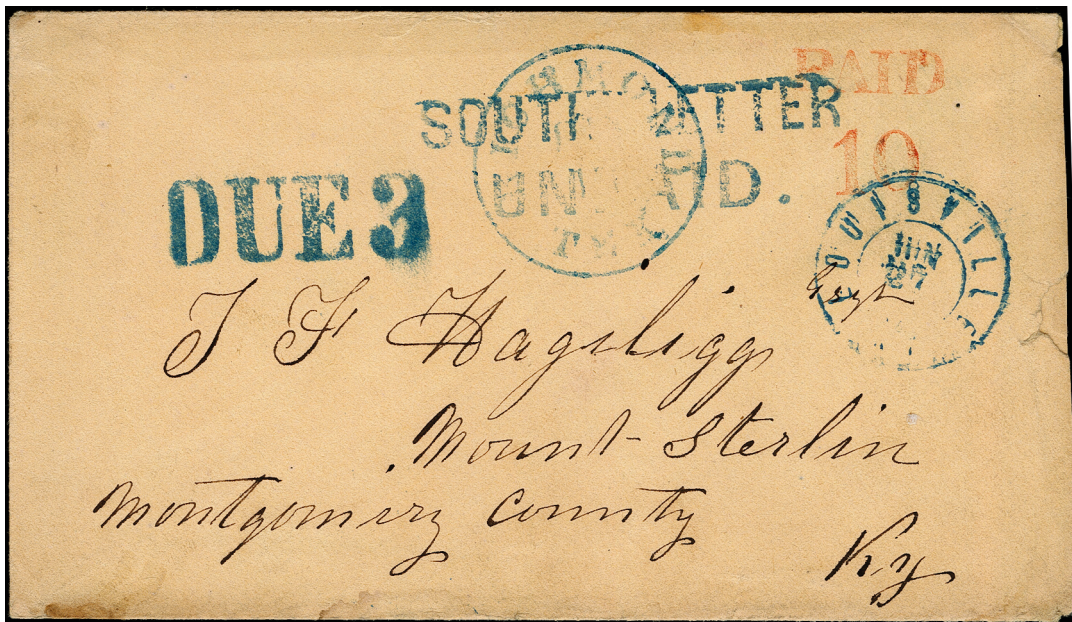 PAID
10
SOUTH LETTER
UNPAID.
DUE 3
LOUISVILLE
JUN
27
J F Hagiligg Esqr
Mount Sterlin
Montgomery County
Ky